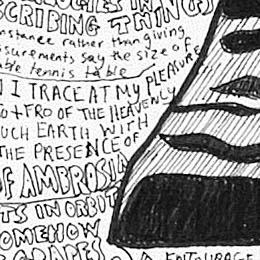 SCRIBING THINGS
nstance rather than giving
surements say the size of
table tennis table
N I TRACE AT MY PLEASURE
TO + FRO OF THE HEAVENLY
UCH EARTH WITH
THE PRESENCE OF
OF AMBROSIA
TS IN ORBIT
OMEHOW
GRAPES
ENTOURAGE